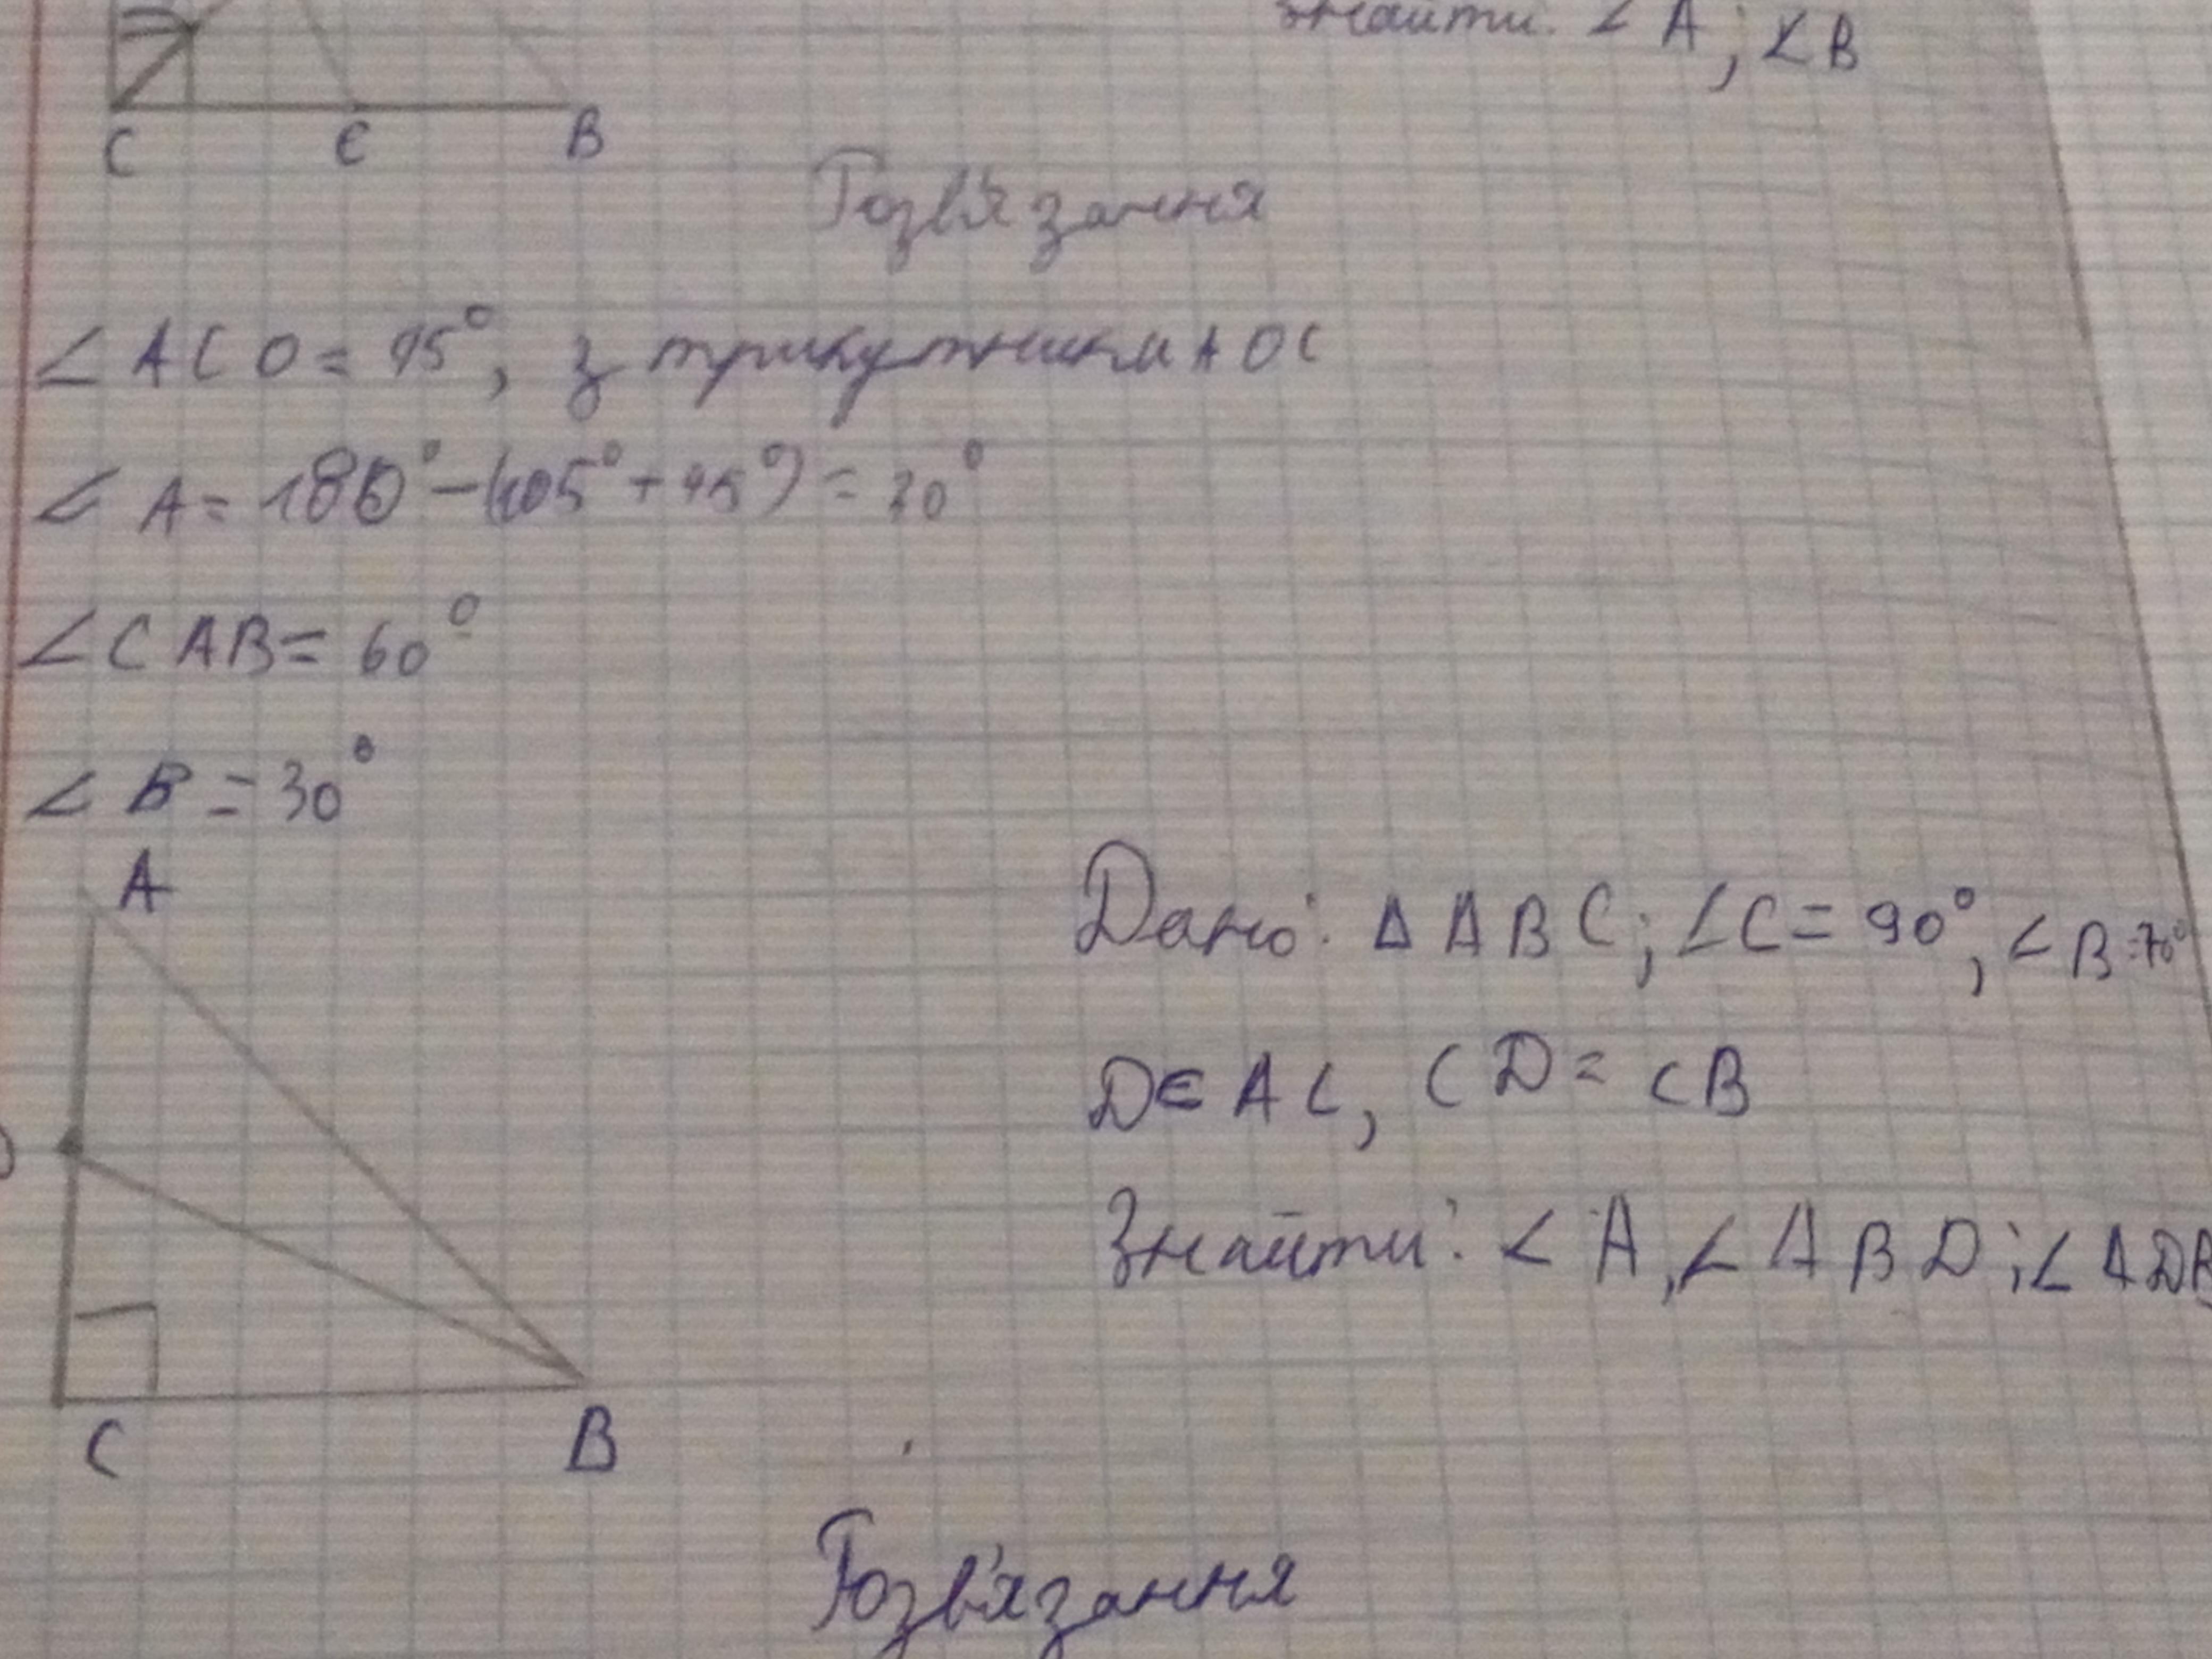 Знайти: ∠A; ∠B
C E B
Розв'язання
∠ACO = 45°, з трикутника AOC
∠A = 180° - (105° + 45°) = 30°
∠CAB = 60°
∠B = 30°
A
Дано: Δ ABC; ∠C = 90°, ∠B = 70°
D∈AC, CD = CB
D
Знайти: ∠A, ∠ABD; ∠ADB
C B
Розв'язання